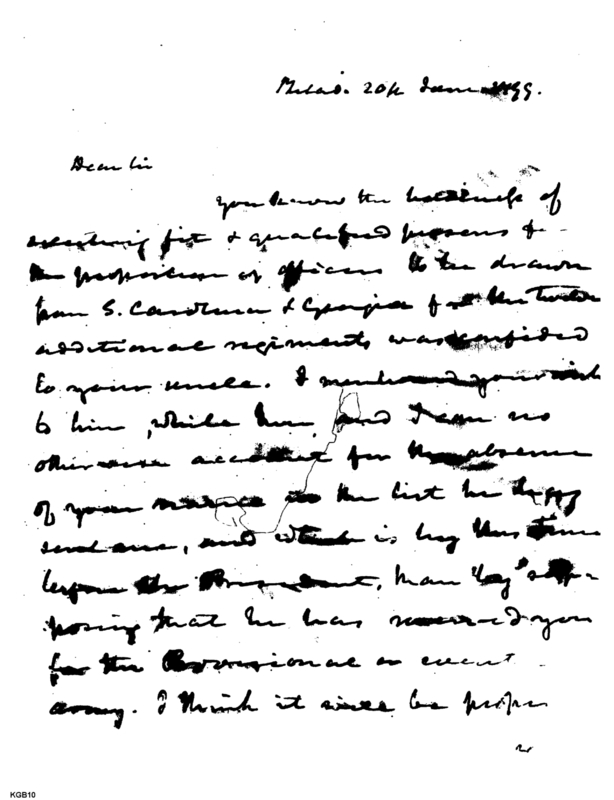 Philad. 20th June 1799.
Dear Sir
you know the business of
selecting fit & qualified persons for
the proportion of officers to be drawn
from S. Carolina & Georgia for the twelve
additional regiments was confided
to your uncle. I mentioned your wish
to him, while here, and I can no
otherwise account for the absence
of your name in the list he has
sent me, and which is by this time
before the President, than by sup-
posing that he has reserved you
for the Provisional or event
army. I think it will be proper
KGB10